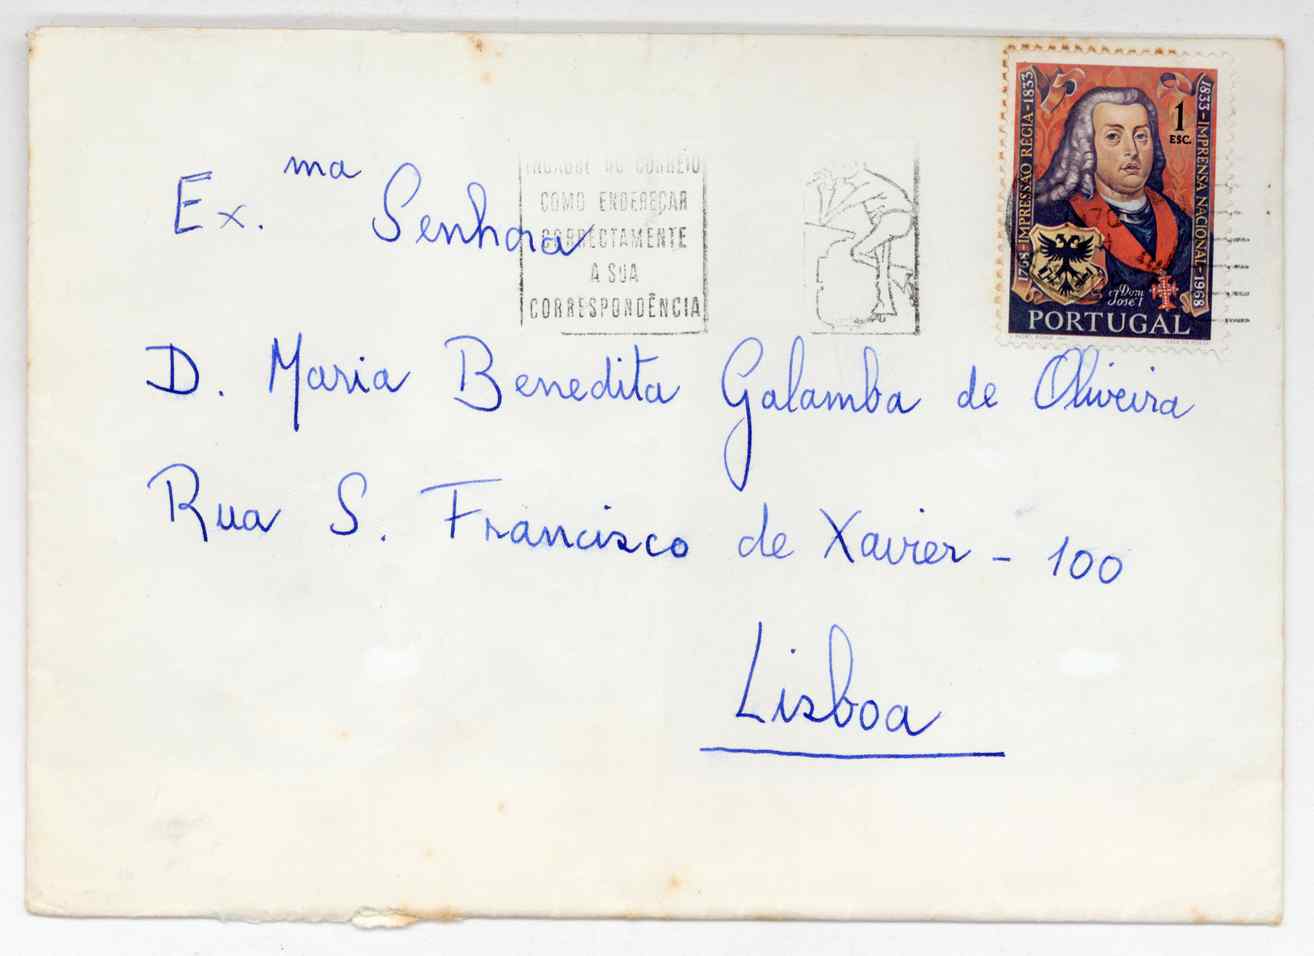 Ex.ma Senhora
D. Maria Benedita Galamba de Oliveira
Rua S. Francisco de Xavier - 100
Lisboa
INDAGUE DO CORREIO
COMO ENDEREÇAR
CORRECTAMENTE
A SUA
CORRESPONDÊNCIA
1768-IMPRESSÃO RÉGIA-1833
1833-IMPRENSA NACIONAL-1968
1
ESC.
Dom
José I
PORTUGAL